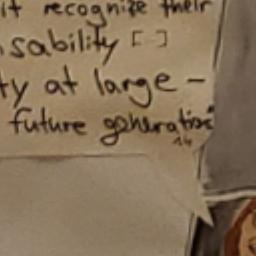 it recognize their
sability [ ]
ty at large –
future generation"
14